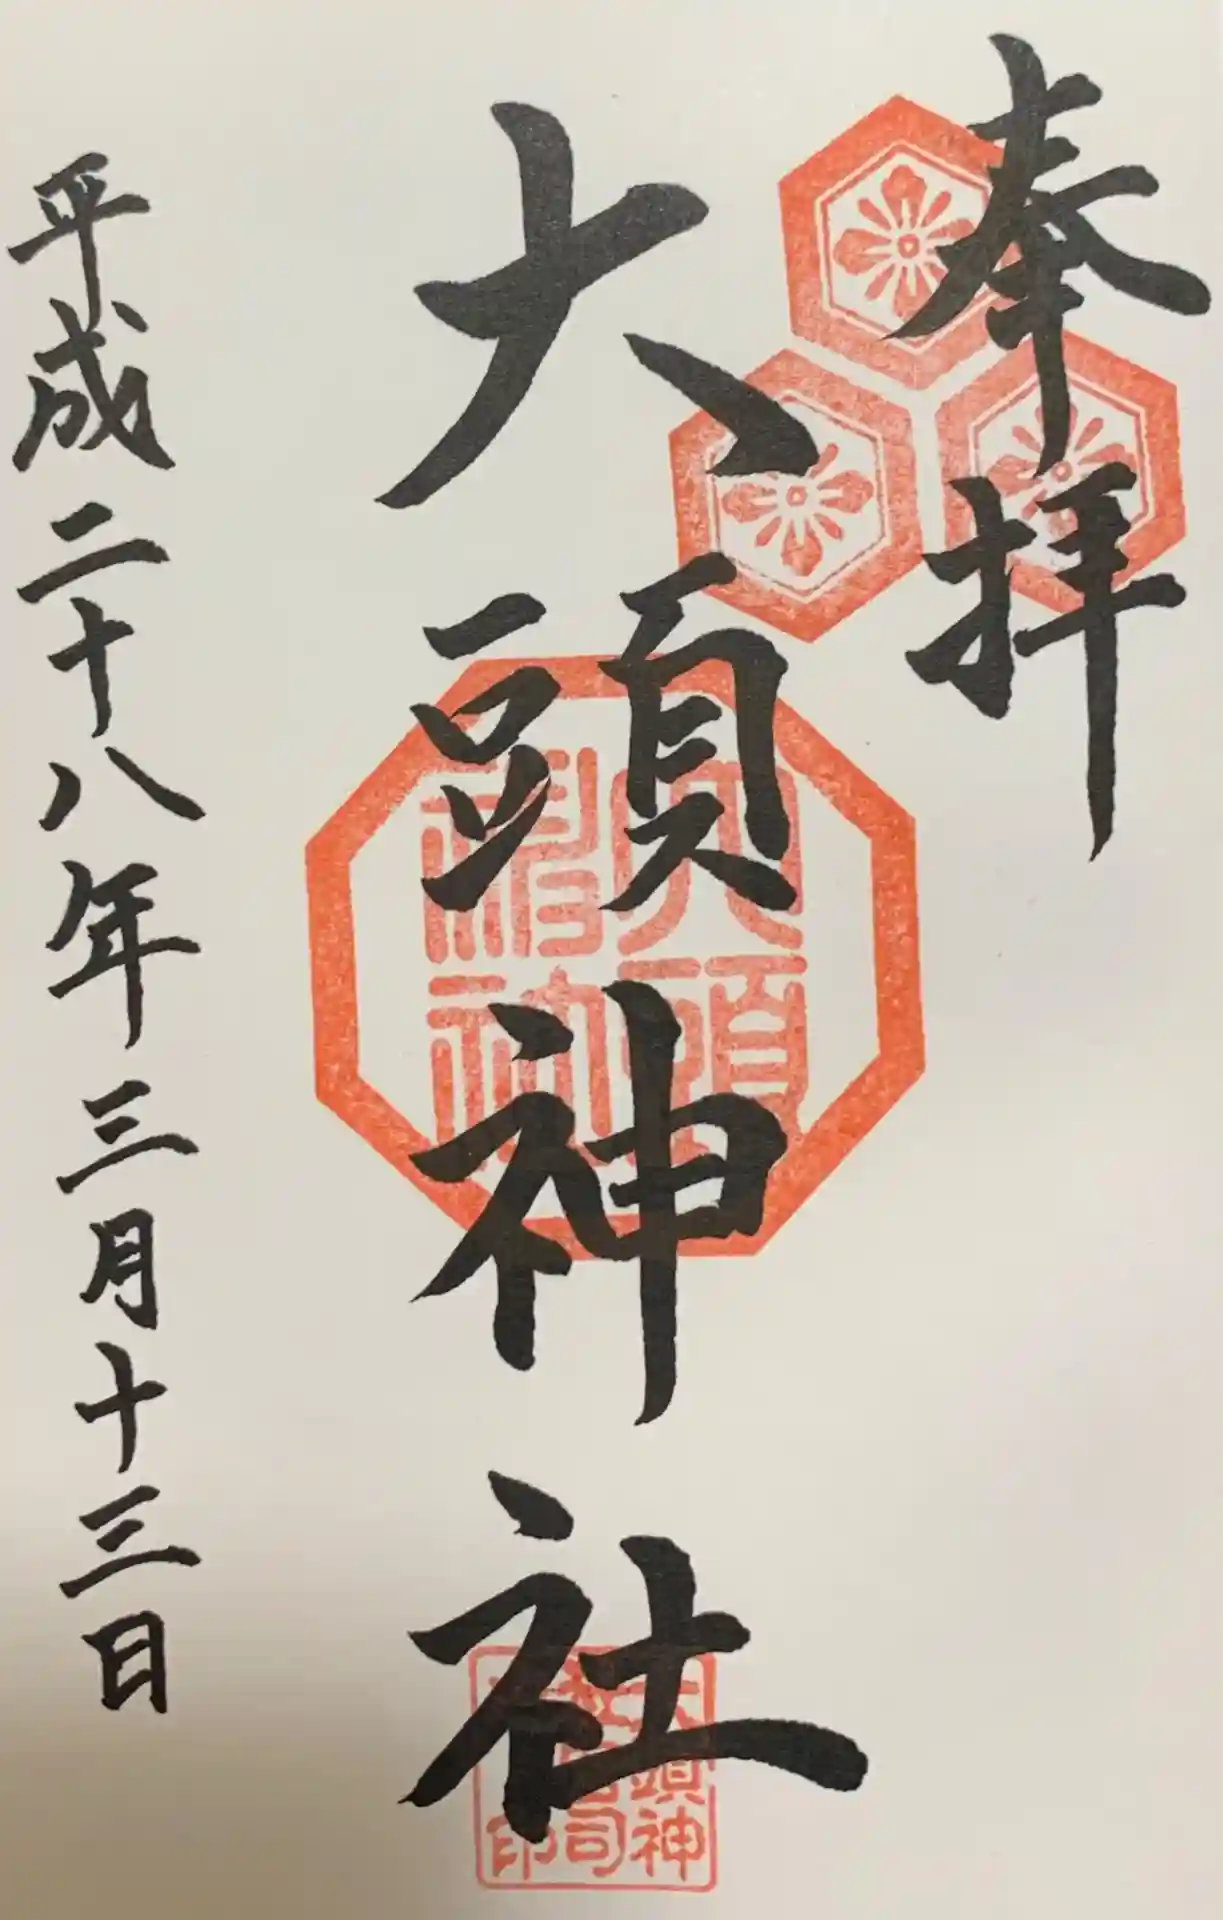 奉拝
大頭神社
平成二十八年三月十三日
大頭神社
大頭神社宮司之印